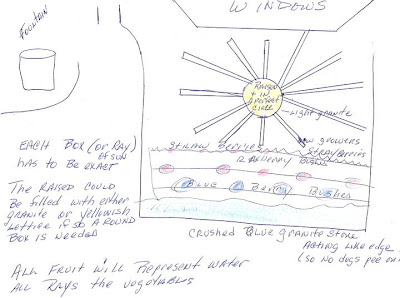 WINDOWS
FOUNTAIN
RAISED
+ IN
A PERFECT
CIRCLE
Light granite
EACH BOX (OR RAY)
OF SUN
HAS TO BE EXACT
STRAW BERRIES
growers
STRAYBERRIES
RAZBERRY BUSHES
BLUE Berry Bushes
THE RAISED COULD
BE FILLED WITH EITHER
GRANITE OR YELLOWISH
LETTICE IF SO A ROUND
BOX IS NEEDED
CRUSHED BLUE GRANITE STONE
ACTING LIKE EDGE
(SO NO DOGS PEE ON
ALL FRUIT WILL REPRESENT WATER
ALL RAYS THE VEGOTABLES